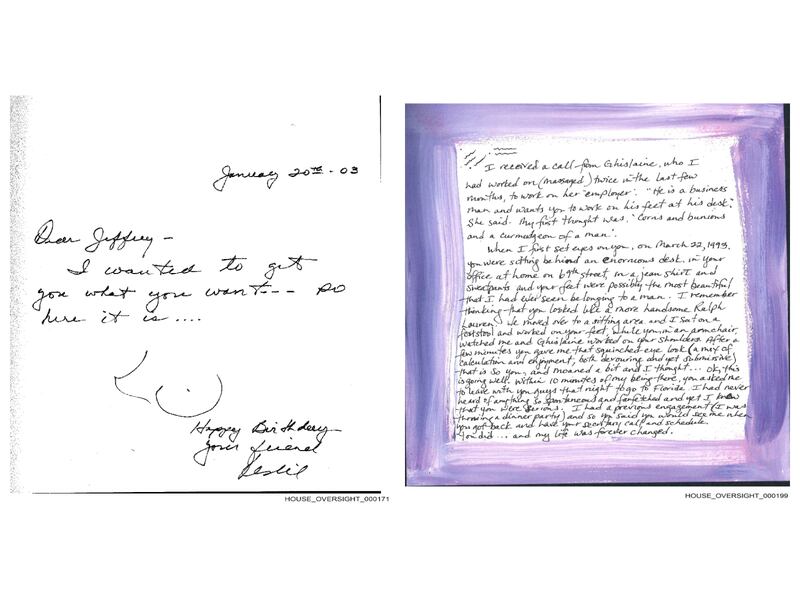 January 20th - 03
Dear Jeffrey -
I wanted to get
you what you want -- so
here it is ....
Happy Birthday
Your friend
Leslie
HOUSE_OVERSIGHT_000171
I received a call from Ghislaine, who I
had worked on (massaged) twice in the last few
months, to work on her "employer". "He is a business
man and wants you to work on his feet at his desk."
She said. My first thought was, 'Corns and bunions
and a curmudgeon of a man'.
When I first set eyes on you, on March 22, 1993,
you were sitting behind an enormous desk in your
office at home on 69th street, in a jean shirt and
sweatpants and your feet were possibly the most beautiful
that I had ever seen belonging to a man. I remember
thinking that you looked like a more handsome Ralph
Lauren. We moved over to a sitting area and I sat on a
footstool and worked on your feet, while you, in an armchair,
watched me and Ghislaine worked on your shoulders. After a
few minutes you gave me that squinched-eye look (a mix of
calculation and enjoyment, both devouring and yet submissive)
that is so you, and moaned a bit and I thought... Ok, this
is going well. Within 10 minutes of my being there, you asked me
to leave with you guys that night to go to Florida. I had never
heard of anything so spontaneous and farfetched and yet I knew
that you were serious. I had a previous engagement (I was
throwing a dinner party) and so you said you would see me when
you got back and have your secretary call and schedule.
You did... and my life was forever changed.
HOUSE_OVERSIGHT_000199